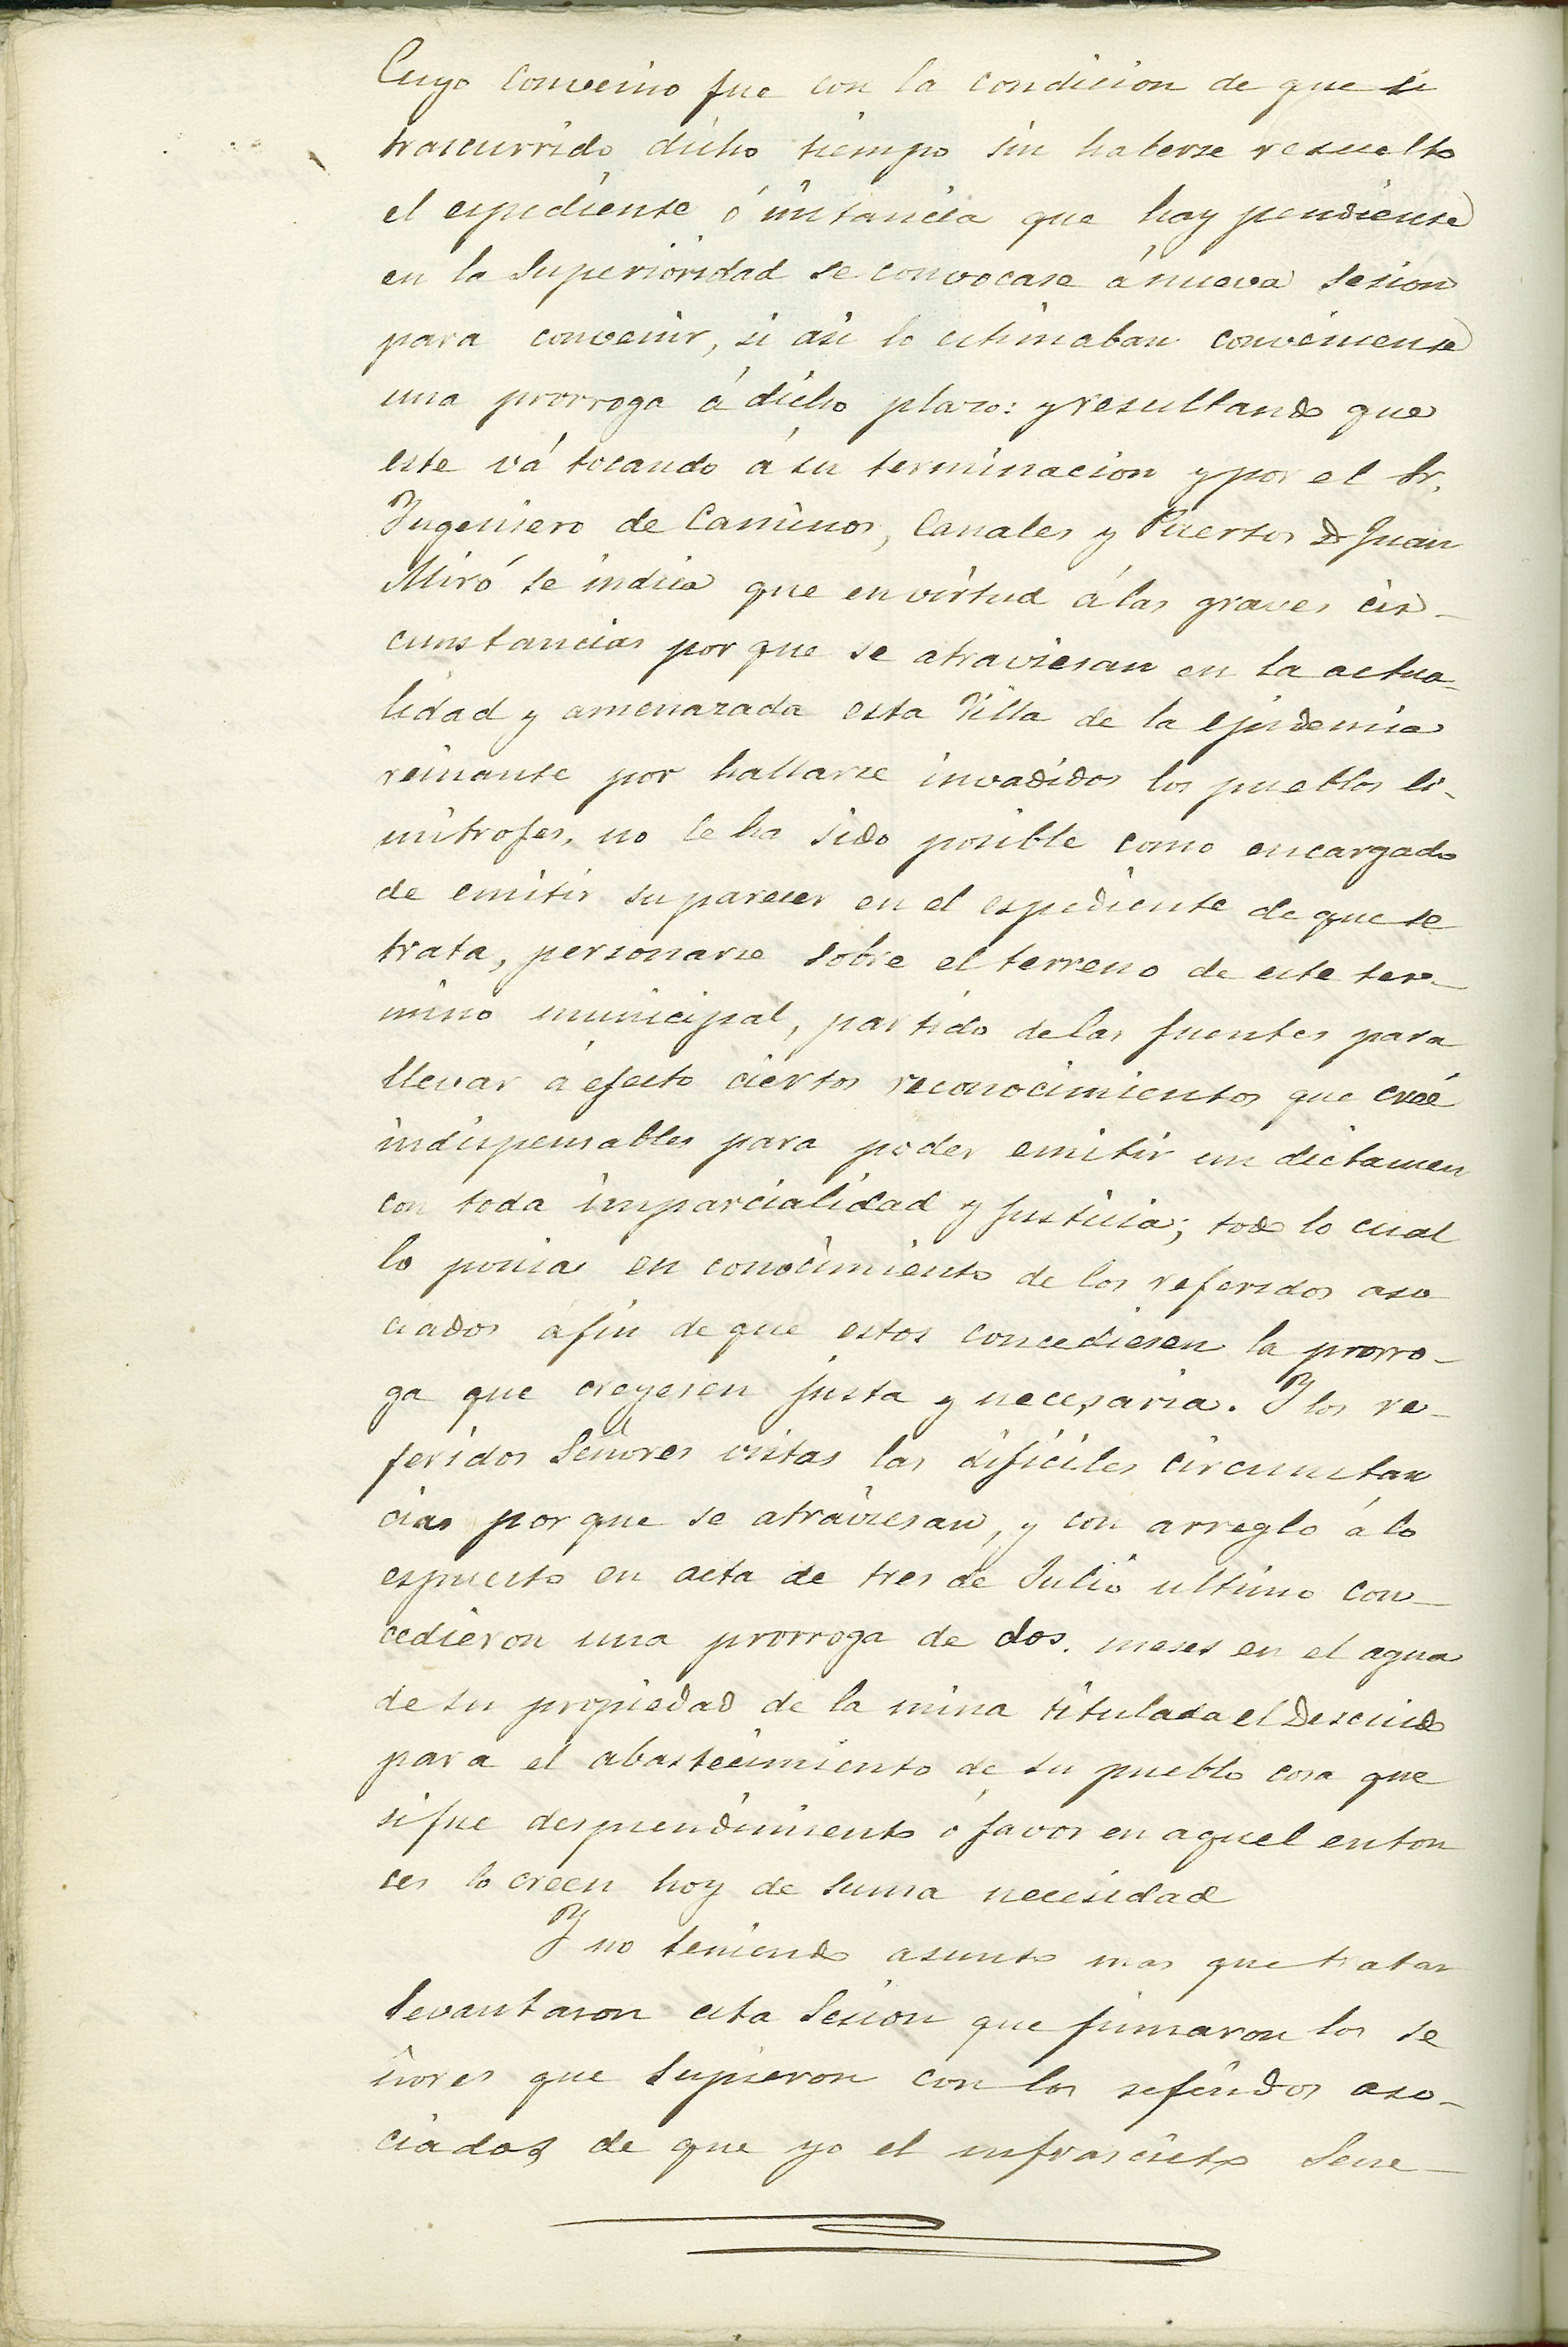 Cuyo convenio fue con la condicion de que si
trascurrido dicho tiempo sin haberse resuelto
el espediente ó instancia que hay pendiente
en la Superioridad se convocase á nueva sesion
para convenir, si asi lo estimaban conveniente
una prorroga á dicho plazo: y resultando que
este vá tocando á su terminacion y por el Sr.
Yngeniero de Caminos, Canales y Puertos Dn Juan
Miró se indica que en virtud á las graves cir-
cunstancias por que se atraviesan en la actua-
lidad y amenazada esta Villa de la epidemia
reinante por hallarse invadidos los pueblos li-
mitrofes, no le ha sido posible como encargado
de emitir su parecer en el espediente de que se
trata, personarse sobre el terreno de este ter-
mino municipal, partido de las fuentes para
llevar á efecto ciertos reconocimientos que creé
indispensables para poder emitir un dictamen
con toda imparcialidad y justicia; todo lo cual
lo ponia en conocimiento de los referidos aso
ciados áfin de que estos concediesen la prorro-
ga que creyesen justa y necesaria. Y los re-
feridos Señores vistas las dificiles circunstan
cias por que se atraviesan, y con arreglo á lo
espuesto en acta de tres de Julio ultimo con-
cedieron una prorroga de dos. meses en el agua
de su propiedad de la mina titulada el Descuido
para el abastecimiento de su pueblo cosa que
si fue desprendimiento ó favor en aquel enton
ces lo creen hoy de suma necesidad
Y no teniendo asunto mas que tratar
levantaron esta Sesion que firmaron los se
ñores que supieron con los referidos aso-
ciados de que yo el infrascrito Secre-